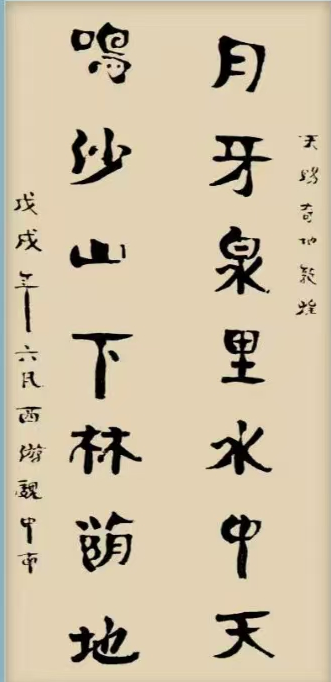 天賜奇地敦煌
月牙泉里水中天
鳴沙山下林荫地
戊戌年六西游魏中南